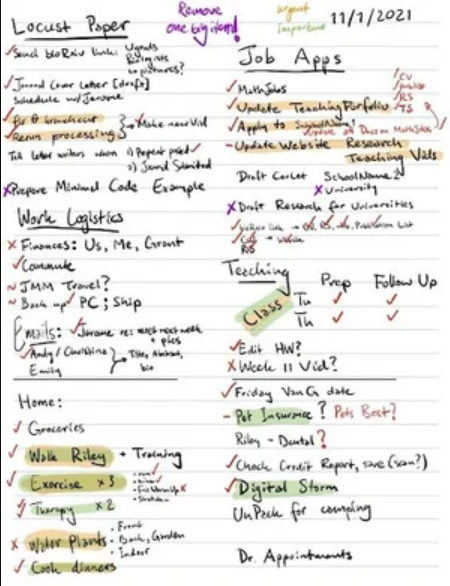 Remove
one big item!
urgent
Important
11/1/2021
Locust Paper
Send bioRxiv link: Ugrads
Biologists
w/ pictures?
Journal Cover Letter [draft]
Schedule w/ Jerome
Fix θ
Rerun processing
Make new Vid
Tell letter writers when 1) Preprint posted
2) Journal Submitted
Prepare Minimal Code Example
Work Logistics
Finances: Us, Me, Grant
Commute
JMM Travel?
Back up PC; Ship
Emails: Jerome re: meet next week
+ plots
Andy / Christine
Emily
Title, Abstract,
bio
Home:
Groceries
Walk Riley + Training
Exercise x3
Therapy x2
Water Plants
Front
Back, Garden
Indoor
Cook dinners
Job Apps
MathJobs
Update Teaching Portfolio
CV
RS
TS
Apply to SchoolName1
Update all Docs on MathJobs
Update Website Research
Teaching Vids
Draft CovLet SchoolName2
University
Draft Research for Universities
Publication List
RS
Teaching
Prep Follow Up
Class Tu
Th
Edit HW?
Week 11 Vid?
Friday VanG date
Pet Insurance? Pets Best?
Riley - Dental?
Check Credit Report, save (scan?)
Digital Storm
UnPack for camping
Dr. Appointments